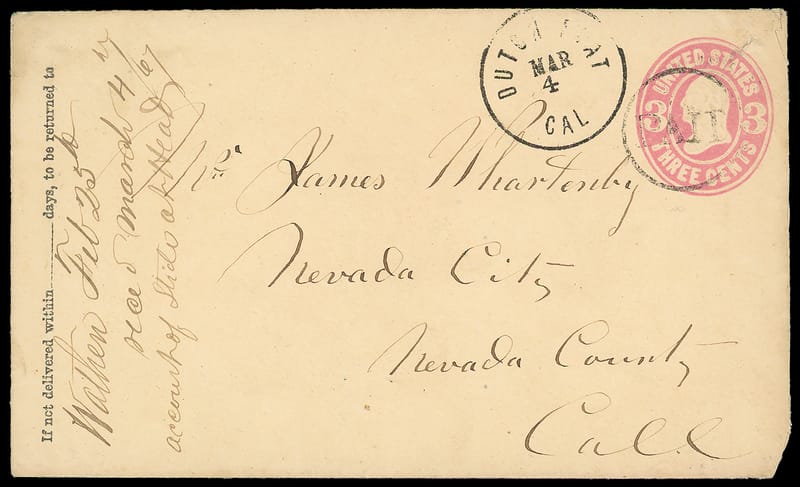 If not delivered within ______ days, to be returned to
Wathen Feb 25th
rec'd March 4th /67
account of Slide at Head
DUTCH FLAT
MAR
4
CAL
UNITED STATES
3 3
THREE CENTS
PAID
Mr James Whartenby
Nevada City
Nevada County
Call